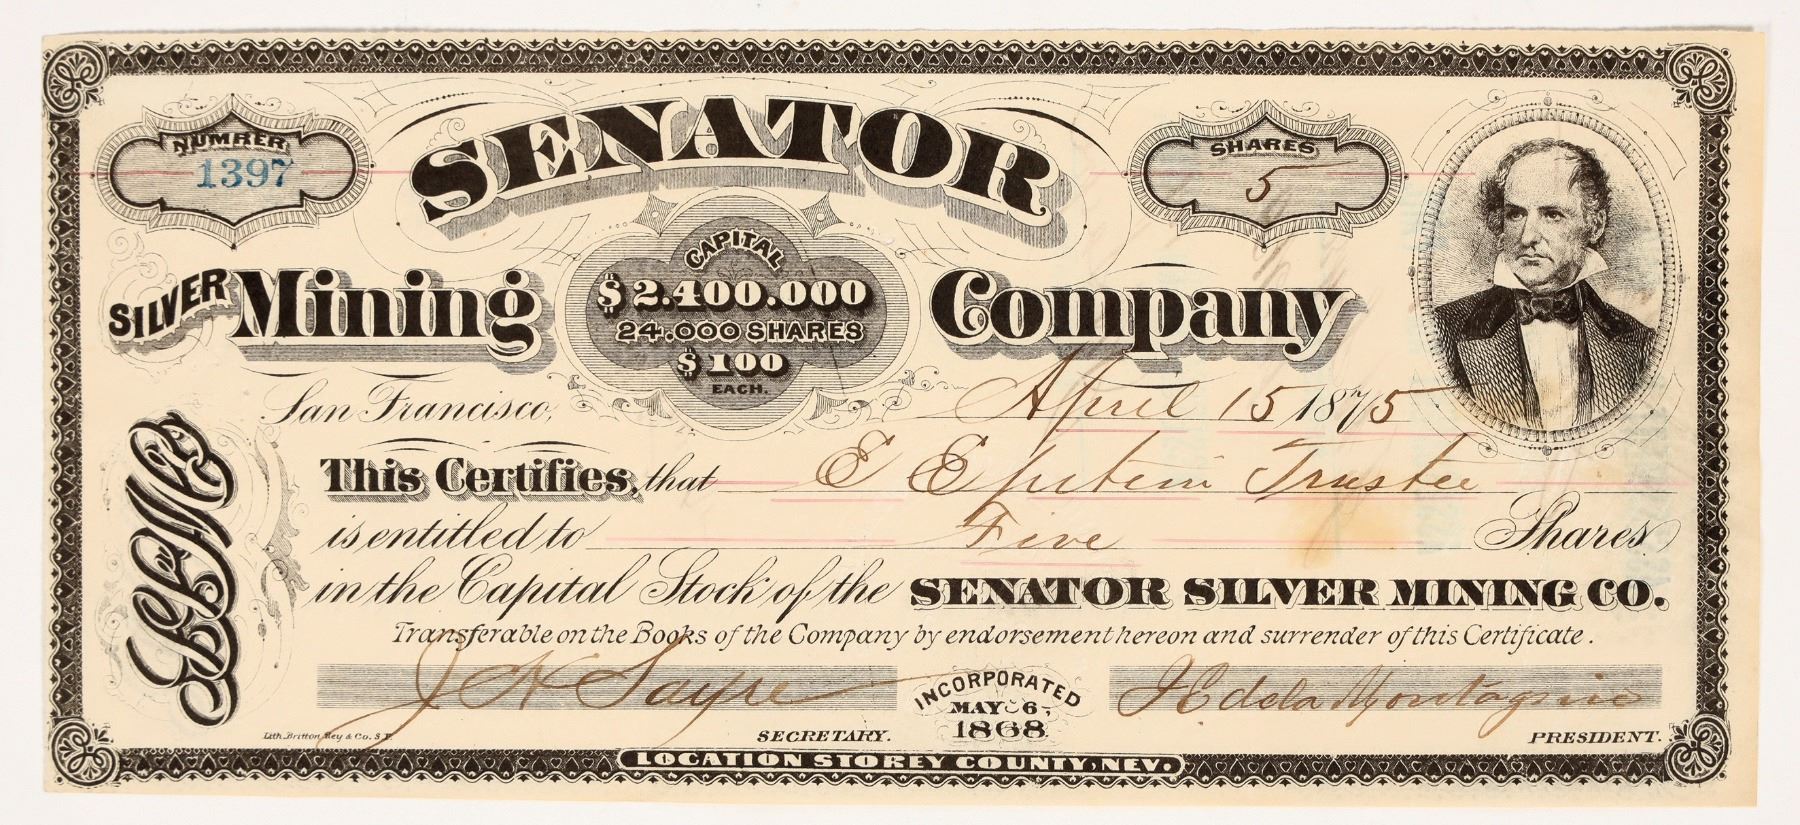 NUMBER
1397
SENATOR
SHARES
5
SILVER Mining Company
CAPITAL
$2.400.000
24.000 SHARES
$100
EACH.
San Francisco, April 15 1875
This Certifies, that E Epstein Trustee
is entitled to Five Shares
in the Capital Stock of the SENATOR SILVER MINING CO.
Transferable on the Books of the Company by endorsement hereon and surrender of this Certificate.
J H Sayre
INCORPORATED
MAY 6,
1868
Lith. Britton Rey & Co. S.F.
SECRETARY.
PRESIDENT.
LOCATION STOREY COUNTY, NEV.